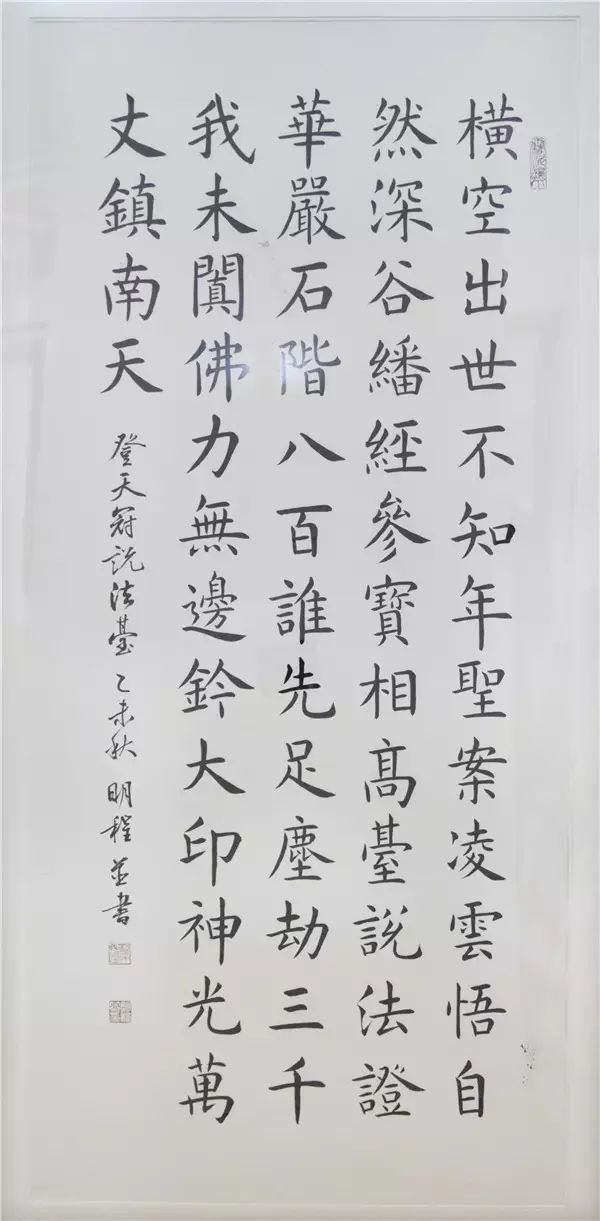 橫空出世不知年聖案凌雲悟自
然深谷繙經參寶相高臺說法證
華嚴石階八百誰先足塵劫三千
我未闐佛力無邊鈐大印神光萬
丈鎮南天
登天冠説法臺乙未秋明程並書